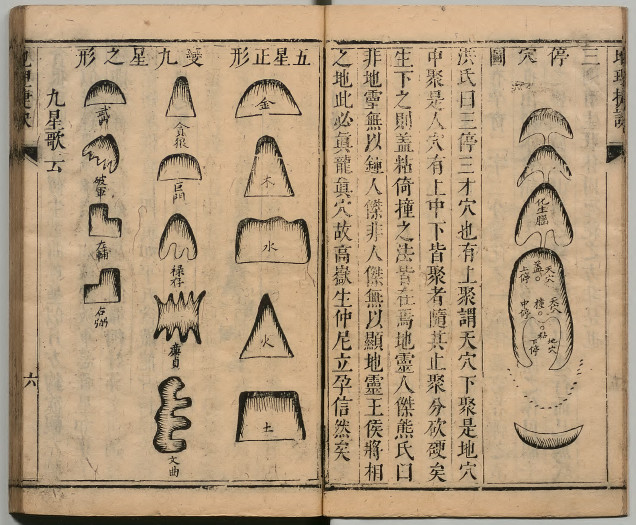 三停穴圖
化生腦
天穴
蓋
上停
人穴
撞
中停
粘
地穴
下停
洪氏曰三停三才穴也有上聚謂天穴下聚是地穴
中聚是人穴有上中下皆聚者隨其止聚分砍硬矣
生下之則盖粘倚撞之法皆在焉地靈人傑熊氏曰
非地靈無以鍾人傑非人傑無以顯地靈王侯將相
之地此必眞龍眞穴故高嶽生仲尼立孕信然矣
五星正形
金
木
水
火
土
變九星之形
貪狼
巨門
祿存
廉貞
文曲
武曲
破軍
左輔
右弼
九星歌云
六